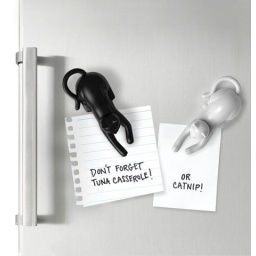 DON'T FORGET
TUNA CASSEROLE!
OR
CATNIP!